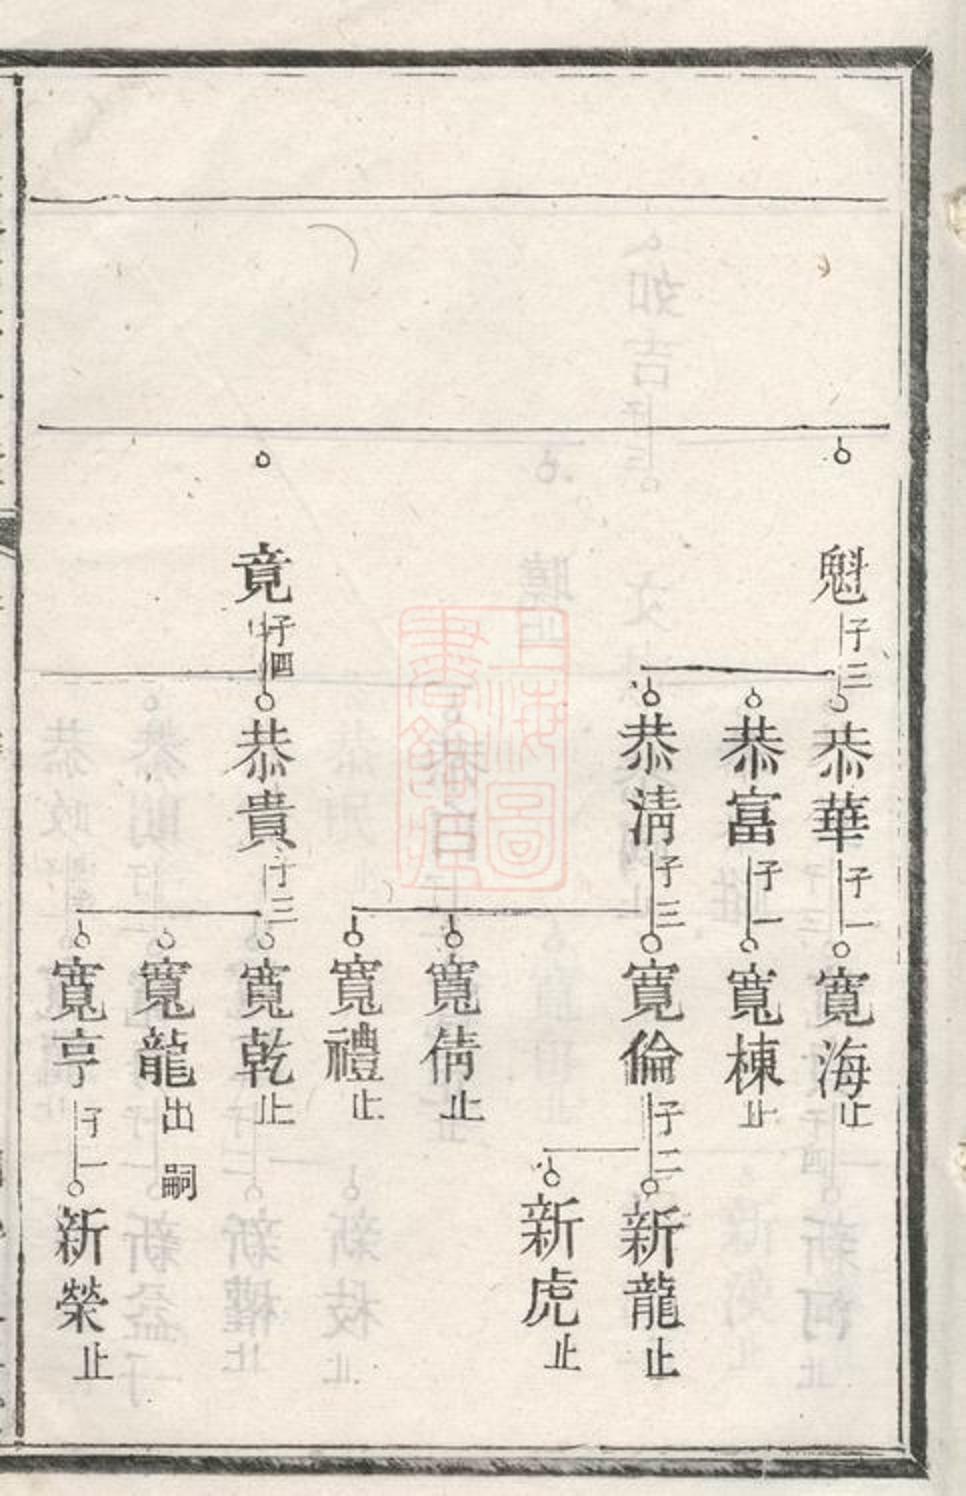 魁子三
恭華子一
寬海止
恭富子一
寬棟止
恭清子三
寬倫子二
新龍止
新虎止
寬倩止
寬禮止
竟子四
恭貴子三
寬乾止
寬龍出嗣
寬亨子一
新榮止
上海圖書館藏